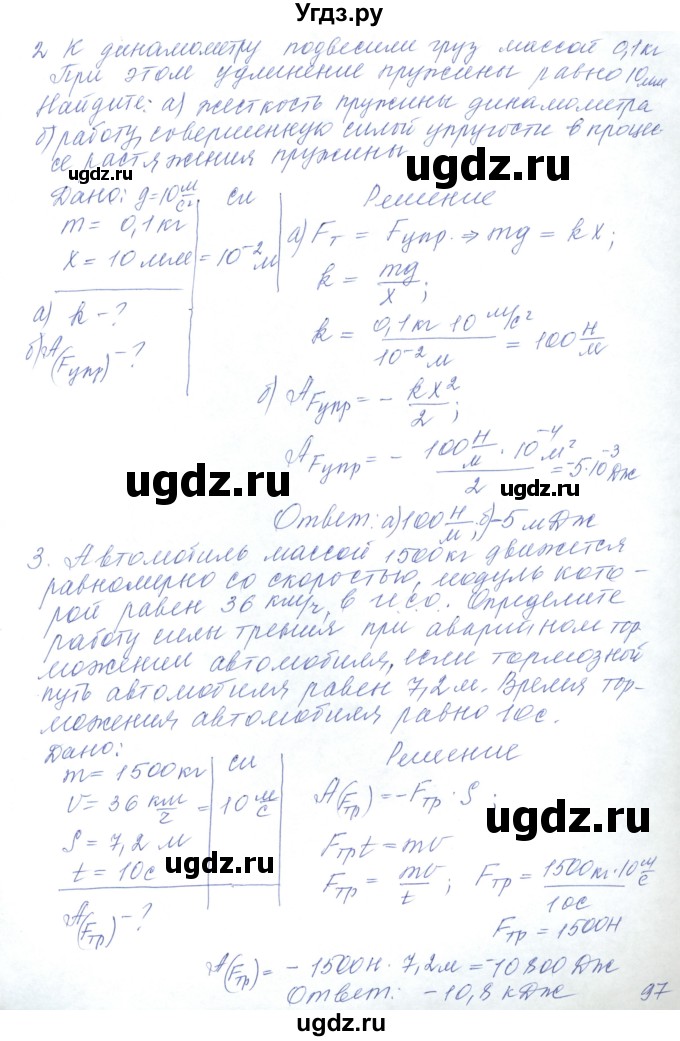 Угдз.ру
2 К динамометру подвесили груз массой 0,1 кг
При этом удлинение пружины равно 10 мм
Найдите: а) жесткость пружины динамометра
б) работу, совершенную силой упругости в процес-
се растяжения пружины
ugdz.ru
ugdz.ru
Дано: g=10 м/с² СИ Решение
m = 0,1 кг
x = 10 мм = 10⁻² м
а) Fт = Fупр. ⇒ mg = kx;
k = mg/x;
а) k - ?
б) A(Fупр) - ?
ugdz.ru
ugdz.ru
k = 0,1 кг 10 м/с² / 10⁻² м = 100 Н/м
б) AFупр = - kx²/2;
AFупр = - 100 Н/м · 10⁻⁴ м² / 2 = -5·10⁻³ Дж
ugdz.ru
ugdz.ru
Ответ: а) 100 Н/м; б) -5 мДж
3. Автомобиль массой 1500 кг движется
равномерно со скоростью, модуль кото-
рой равен 36 км/ч, в ИСО. Определите
работу силы трения при аварийном тор-
можении автомобиля, если тормозной
путь автомобиля равен 7,2 м. Время тор-
можения автомобиля равно 10 с.
ugdz.ru
ugdz.ru
Дано: СИ Решение
m = 1500 кг
v = 36 км/ч = 10 м/с
S = 7,2 м
t = 10 с
A(Fтр) - ?
A(Fтр) = -Fтр · S;
Fтр t = mv
Fтр = mv/t; Fтр = 1500 кг · 10 м/с / 10 с
Fтр = 1500 Н
ugdz.ru
ugdz.ru
A(Fтр) = - 1500 Н · 7,2 м = -10800 Дж
Ответ: -10,8 кДж
97
ugdz.ru